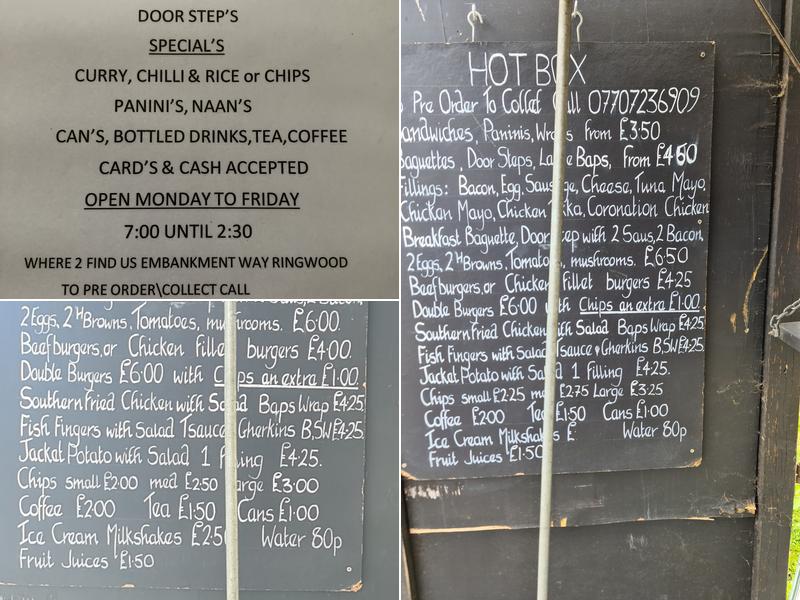 DOOR STEP'S
SPECIAL'S
CURRY, CHILLI & RICE or CHIPS
PANINI'S, NAAN'S
CAN'S, BOTTLED DRINKS,TEA,COFFEE
CARD'S & CASH ACCEPTED
OPEN MONDAY TO FRIDAY
7:00 UNTIL 2:30
WHERE 2 FIND US EMBANKMENT WAY RINGWOOD
TO PRE ORDER\COLLECT CALL
2 Eggs, 2 H Browns. Tomatoes, mushrooms. £6.00.
Beefburgers, or Chicken Fillet burgers £4.00.
Double Burgers £6.00 with Chips an extra £1.00.
Southern Fried Chicken with Salad Baps Wrap £4.25.
Fish Fingers with Salad T sauce Gherkins B,SW £4.25.
Jacket Potato with Salad 1 Filling £4.25.
Chips small £2.00 med £2.50 Large £3.00
Coffee £2.00 Tea £1.50 Cans £1.00
Ice Cream Milkshakes £2.50 Water 80p
Fruit Juices £1.50
HOT BOX
Pre Order To Collect Call 07707236909
Sandwiches, Paninis, Wraps from £3.50
Baguettes, Door Steps, Large Baps, from £4.60
Fillings: Bacon, Egg, Sausage, Cheese, Tuna Mayo,
Chicken Mayo, Chicken Tikka, Coronation Chicken
Breakfast Baguette, Doorstep with 2 Saus, 2 Bacon,
2 Eggs, 2 H Browns. Tomato, mushrooms. £6.50
Beefburgers, or Chicken Fillet burgers £4.25
Double Burgers £6.00 with Chips an extra £1.00.
Southern Fried Chicken with Salad Baps Wrap £4.25.
Fish Fingers with Salad T sauce & Gherkins B,SW £4.25.
Jacket Potato with Salad 1 Filling £4.25.
Chips small £2.25 med £2.75 Large £3.25
Coffee £2.00 Tea £1.50 Cans £1.00
Ice Cream Milkshakes £ Water 80p
Fruit Juices £1.50